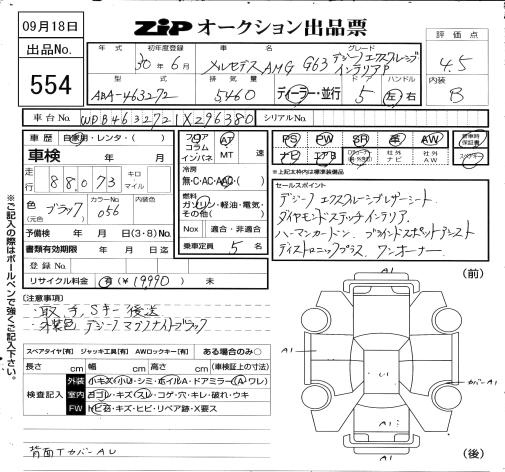 09月18日
ZiP オークション出品票
出品No.
554
年式 初年度登録 車名 グレード 評価点
30年6月 メルセデスAMG G63 デジーノエクスクルーシブインテリアP 4.5
型式 排気量 ドア ハンドル 内装
ABA-463272 5,460 ディーラー・並行 5 左・右 B
車台No. WDB4632721X296380 シリアルNo.
車歴 自家用・レンタ・( )
車検 年 月
走行 88,073 キロ マイル
色(元色) ブラック カラーNo. 056 内装色
予備検 年 月 日(3・8)No.
書類有効期限 年 月 日迄
登録No.
リサイクル料金 有(¥19990) 未
フロア コラム インパネ AT MT 速
冷房 無・C・AC・AAC・( )
燃料 ガソリン・軽油・電気・その他( )
Nox 適合・非適合
乗車定員 5 名
PS PW SR 革 AW 新車時保証書
ナビ エアB 社外ナビ 社外AW スペアキー
※上記太枠内は標準装備品
セールスポイント
デジーノエクスクルーシブレザーシート
ダイヤモンドステッチインテリア
ハーマンカードン ブラインドスポットアシスト
ディストロニックプラス ワンオーナー
(注意事項)
・取、手、Sキー後送
・未装色 デジーノマグナイトブラック
スペアタイヤ[有] ジャッキ工具[有] AWロックキー[有] ある場合のみ○
長さ cm 幅 cm 高さ cm (車検証上の寸法)
検査記入
外装 小キズ・小U・シミ・ホイルA・ドアミラー(A・ワレ)
室内 ヨゴレ・キズ・スレ・コゲ・穴・キレ・破れ・ウキ
FW トビ石・キズ・ヒビ・リペア跡・X要ス
背面TカバーAU
※ご記入の際はボールペンで強くご記入下さい。
A1
(前)
A1
カバーA1
A1
A1
(後)